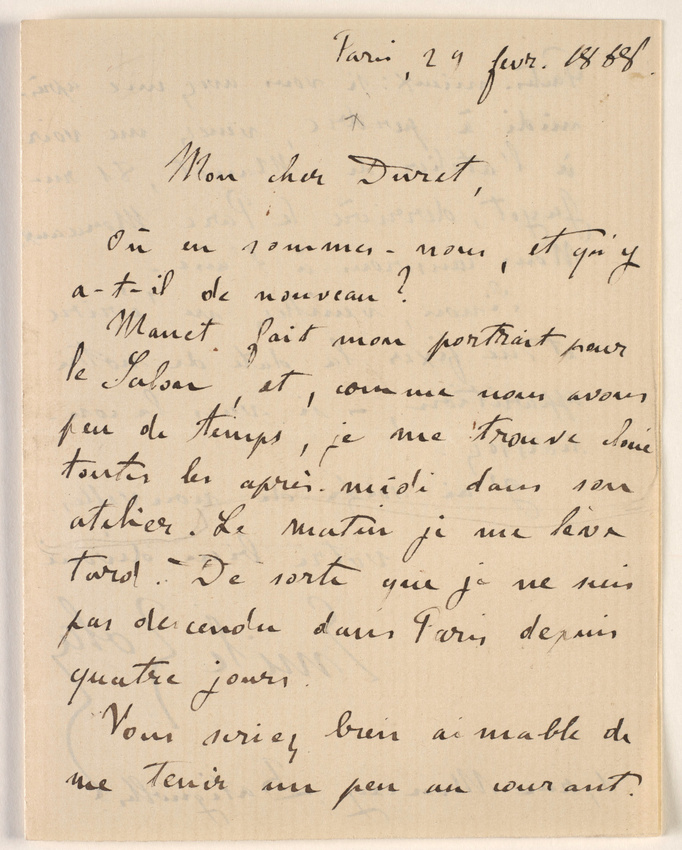 Paris, 29 fevr. 1868.
Mon cher Duret,
Où en sommes-nous, et qu'y
a-t-il de nouveau ?
Manet fait mon portrait pour
le Salon, et, comme nous avons
peu de temps, je me trouve cloué
toutes les après-midi dans son
atelier. Le matin je me lève
tard. – De sorte que je ne suis
pas descendu dans Paris depuis
quatre jours.
Vous seriez bien aimable de
me tenir un peu au courant.